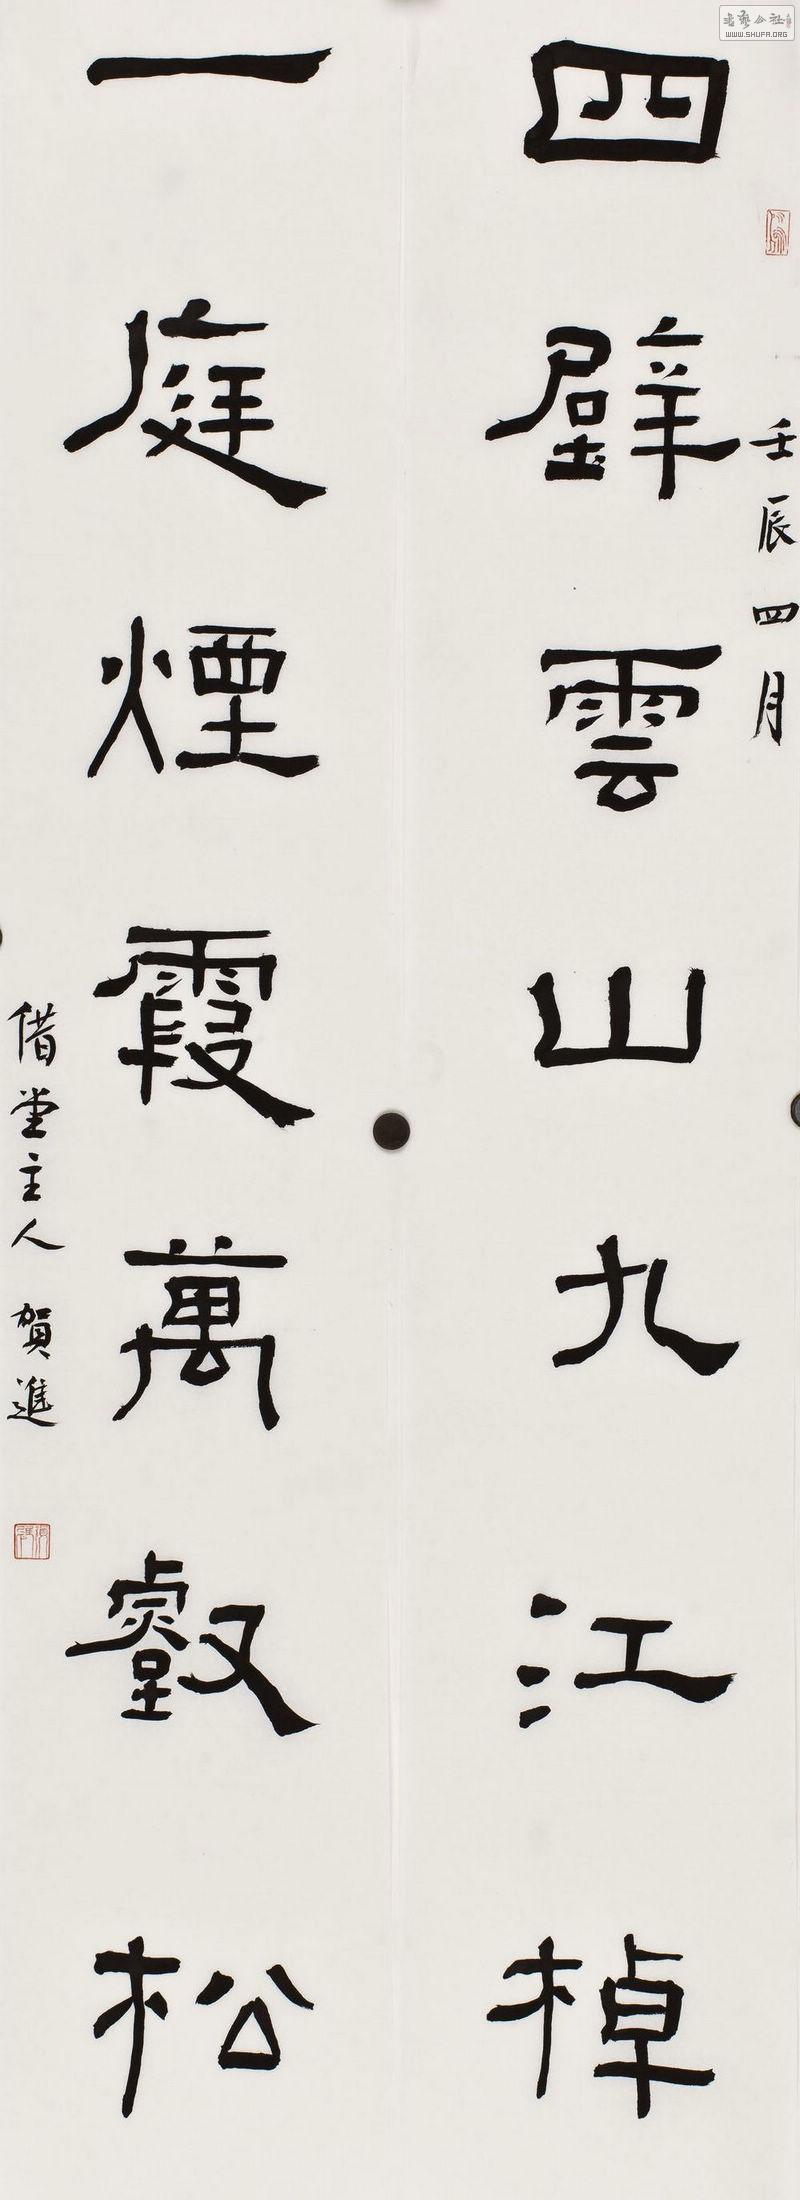 壬辰四月
四壁雲山九江棹
一庭煙霞萬壑松
借堂主人 賀進
書藝公社
WWW.SHUFA.ORG